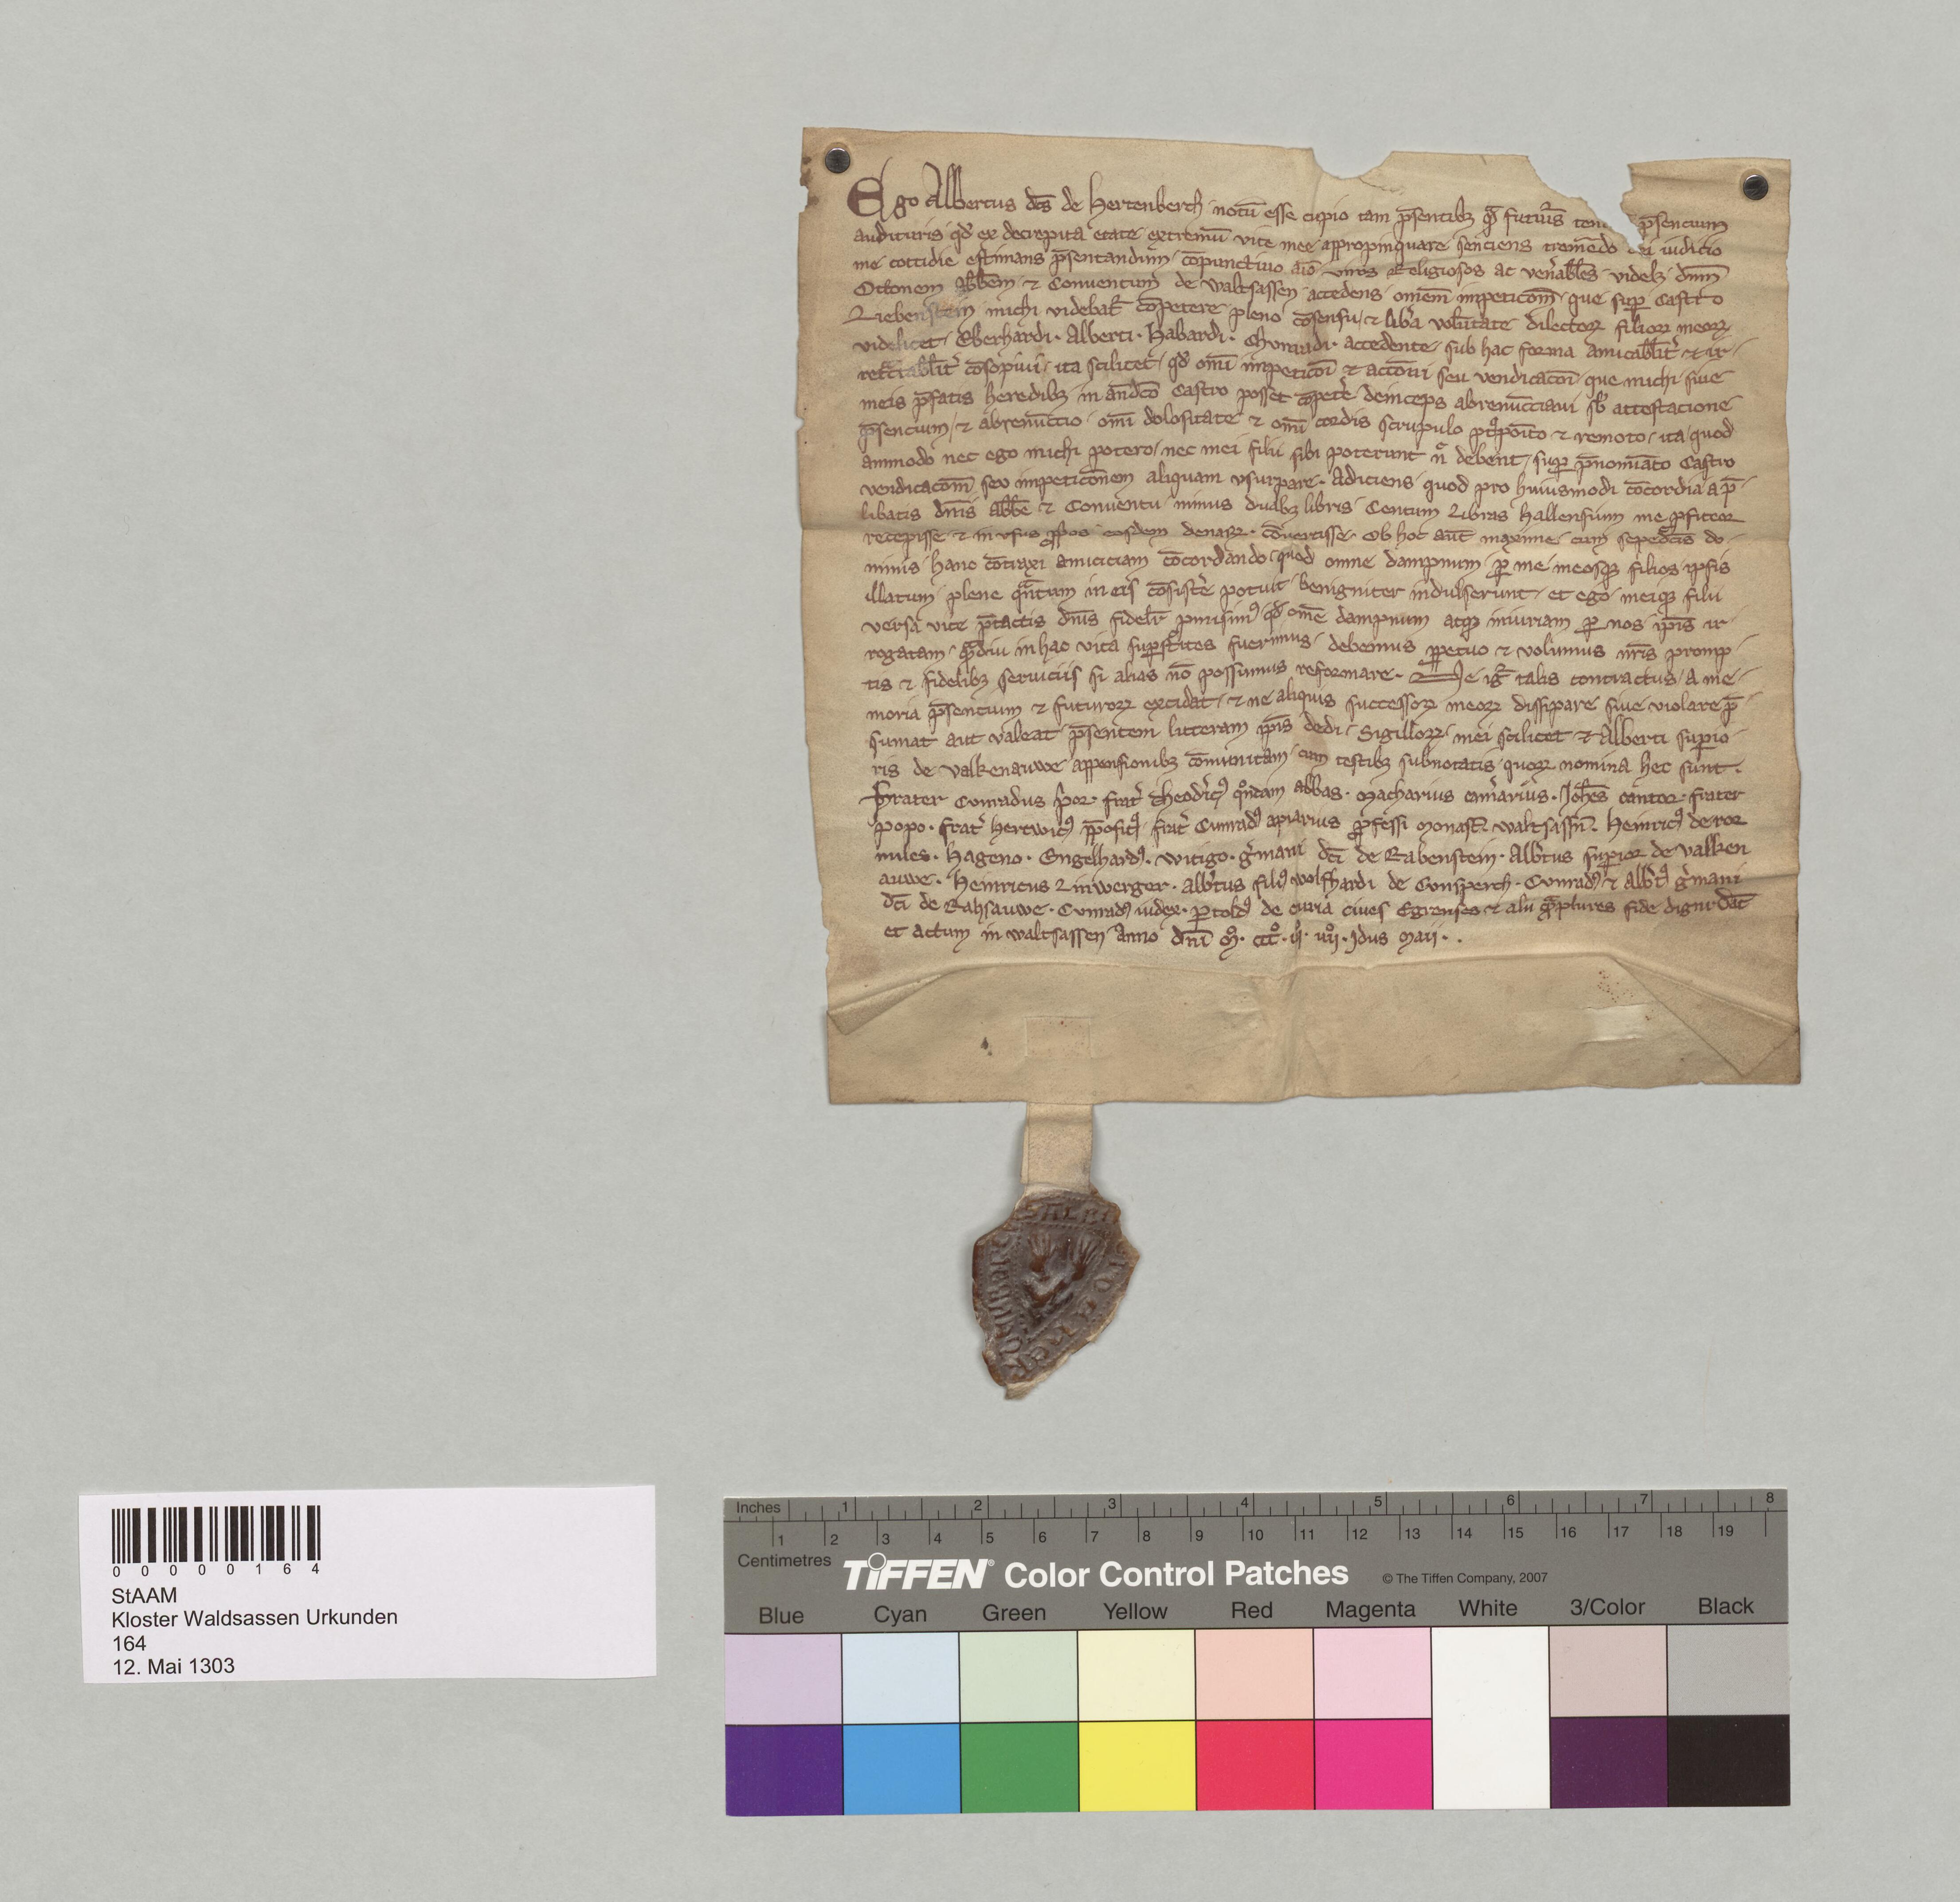 Ego Albertus dc̄s de Hertenberch notū esse cupio tam p̄sentibꝫ q̄ futuris p̄sencium
audituris qd̕ ex decrepita etate extremū vite mee appropinquare senciens tremēdo iudicio
me cottidie estimans p̄sentandum cōpunctiuo aīo viros Religiosos ac ven̕abiles videlꝫ dn̄m
Ottonem abb̄em ⁊ Conuentum de Waltsassen accedens om̄em impeticōem que sup̱ Castro
Liebenstein michi videbat̕ cōpetere pleno cōsensu ⁊ lib̕a volūtate dilectoꝝ filioꝝ meoꝝ
videlicet Eberhardi · Alberti · Habardi · Chunradi · accedente sub hac forma amicabilit̕ ⁊ ir
ret̕ctabilit̕ cōsopiui ita scilicet qd̕ om̄i impeticōi ⁊ accōni seu vendicacōi que michi siue
meis p̄fatis heredibꝫ in an̄dc̄o Castro posset cōpet̕e deinceps abrenuncciaui sb̕ attestacione
p̄sencium ⁊ abrenūctio om̄i dolositate ⁊ om̄i cordis scrupulo ⁊ remoto ita quod
ammodo nec ego michi potero nec mei filii sibi poterunt n̄ debent sup̱ p̄nomiāto Castro
vendicacōm seu impeticōnem aliquam vsurpare · Adiciens quod pro huiusmodi cōcordia a p̄
libatis dn̄is abb̄e ⁊ Conuentu minus duabꝫ libris Centum Libras Hallensium me ꝓfiteor
recepisse ⁊ in vsus ꝓprios eosdem denar̕ · cōuertisse · Ob hoc aut̄ maxime cum sepedc̄is do
minis hanc cōtraxi amiciciam cōcordando quod omne dampnum ꝑ me meosqꝫ filios ipsis
illatum plene q̄ntum in eis cōsist̕e potuit benigniter indulserunt et ego meiqꝫ filii
versa vice p̄tactis dn̄is fidelit̕ ꝓmisimꝰ qd̕ om̄e dampnum atqꝫ iniuriam ꝑ nos ip̄is ir
rogatam q̄diu in hac vita sup̱stites fuerimus debemus ꝑpetuo ⁊ volumus nr̄is promp
tis ⁊ fidelibꝫ seruiciis si alias nō possumus reformare · Ne ig̕ talis contractus a me
moria p̄sencium ⁊ futuroꝝ excidat ⁊ ne aliquis successoꝝ meoꝝ dissipare siue violare p̄
sumat aut valeat p̄sentem litteram ip̄is dedi Sigilloꝝ mei scilicet ⁊ Alberti sup̱io
ris de Valkenauwe appensionibꝫ cōmunitam cum testibꝫ subnotatis quoꝝ nomina hec sunt ·
Frater Cunradus p̕or frat̕ theodricꝰ qͦndam abbas · Macharius cam̕arius · Joh̄es cantor frater
popo · frat̕ Hertwicꝰ p̄positꝰ frat̕ Cunradꝰ apiarius ꝓfessi Monast̕ Waltsassn̄ · Heinricꝰ de ror
miles · Hageno · Engelhardꝰ · Witigo · g̕mani dc̄i de Rabenstein · Alb̕tus sup̱ior de Valken
auwe · Heinricus Linwerger · alb̕tus filiꝰ Wolfhardi de Cunsperch · Cunradꝰ ⁊ Alb̕tꝰ g̕mani
dc̄i de Rahsauwe · Cunradꝰ iudex · ꝑtoldꝰ de curia ciues Egrenses ⁊ alii q̄plures fide digni dat̄
et actum in Waltsassen anno dn̄i Mͦ · CCCͦ · iijͦ · iiijͦ · Jdus Maii · .
0 0 0 0 0 1 6 4
StAAM
Kloster Waldsassen Urkunden
164
12. Mai 1303
Inches 1 2 3 4 5 6 7 8
1 2 3 4 5 6 7 8 9 10 11 12 13 14 15 16 17 18 19
Centimetres
TIFFEN® Color Control Patches © The Tiffen Company, 2007
Blue Cyan Green Yellow Red Magenta White 3/Color Black